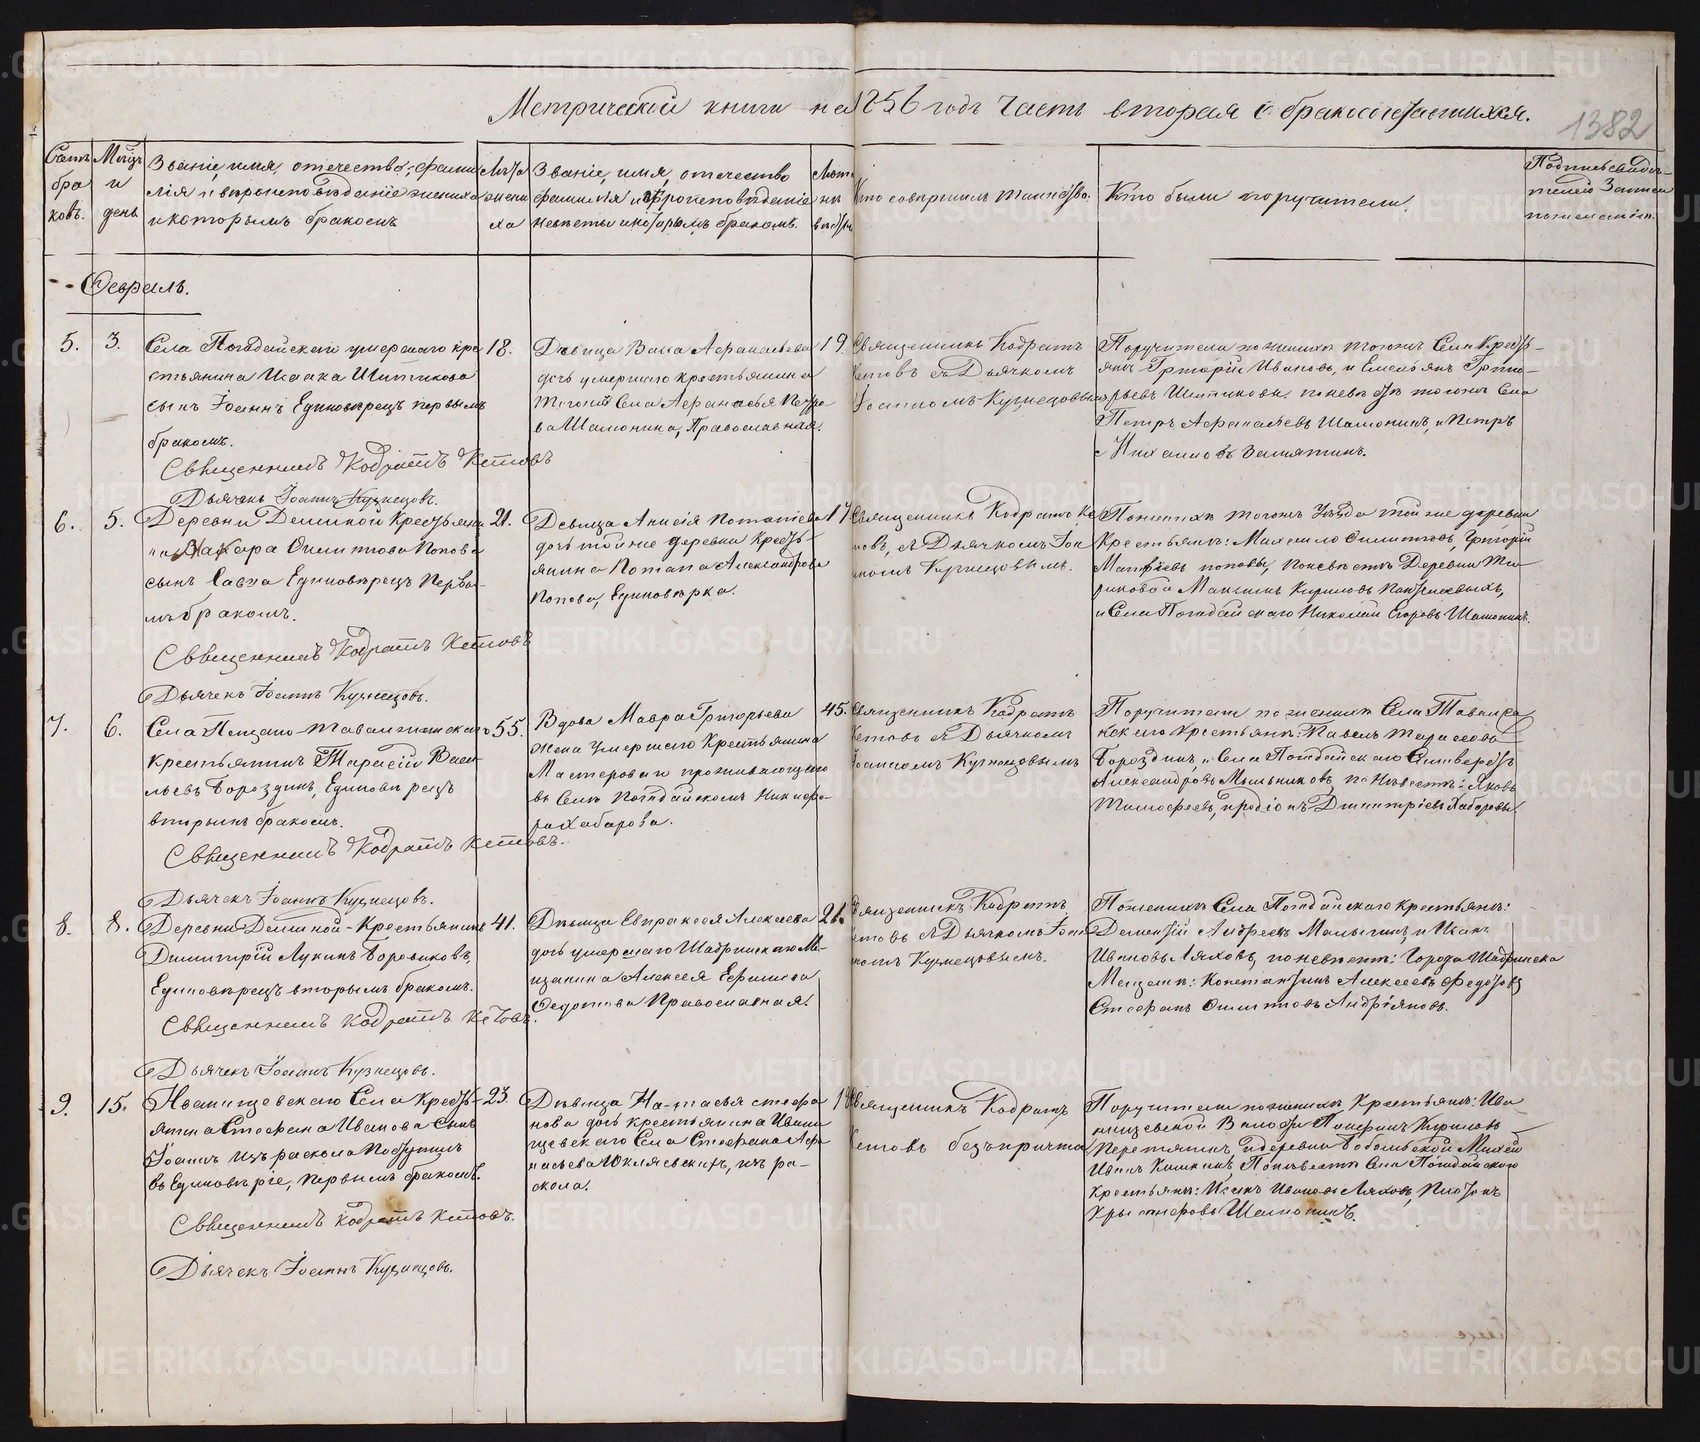 Метрической книги на 1856 годъ Часть вторая о бракосочетавшихся.
1382
Счетъ браковъ.
Мѣсяцъ и день
Званіе, имя, отечество, фамилія и вѣроисповѣданіе жениха и которымъ бракомъ
Лѣта жениха
Званіе, имя, отечество фамилія и вѣроисповѣданіе невѣсты и которымъ бракомъ.
Лѣта невѣсты
Кто совершилъ таинство.
Кто были поручители.
Февраль.
5.
3.
Села
умершаго кре
стьянина Исаака Шитикова
сынъ Іоаннъ Единовѣрецъ первымъ
бракомъ.
Священникъ Кодратъ Кетовъ
Дьячекъ Іоаннъ Кузнецовъ.
18.
Дѣвица Васса Афанасьева
дочь умершаго крестьянина
тогожъ Села Афанасья Петро
ва Шамонина, Православная.
19.
Священникъ Кодратъ
Кетовъ съ Дьячкомъ
Іоанномъ Кузнецовымъ
Поручители по женихѣ тогожъ Села Кресть-
янъ Григорій Ивановъ, и Емельянъ Григо-
рьевъ Шитиковы. по невѣстѣ тогожъ Села
Петръ Афанасьевъ Шамонинъ, и Петръ
Замятинъ.
6.
5.
Деревни
Крестьяни
на Захара Филиппова Попова
сынъ Савва Единовѣрецъ Первы-
мъ бракомъ.
Священникъ Кодратъ Кетовъ
Дьячекъ Іоаннъ Кузнецовъ.
21.
Девица Анисія Потапіева
дочь той же деревни Кресть-
янина Потапа Александрова
Попова, Единовѣрка.
17
Священникъ Кодратъ Ке
товъ, съ Дьячкомъ Іоан
номъ Кузнецовымъ.
По женихѣ
той же деревни
Крестьянъ: Михаило Филиповъ, Григорій
поповы, По невѣстѣ Деревни
Максимъ Кириловъ
и Села
Николай Егоровъ Шамонинъ.
7.
6.
Села Песчано-Таволжанскаго
крестьянинъ Тарасій Васи
льевъ Бороздинъ, Единовѣрецъ
вторымъ бракомъ.
Священникъ Кодратъ Кетовъ.
Дьячекъ Іоаннъ Кузнецовъ.
55.
Вдова Мавра Григорьева
Жена умершаго Крестьянина
Мастероваго проживающаго
въ Селѣ
Никифо-
ра Хабарова.
45.
Священникъ Кодратъ
Кетовъ съ Дьячкомъ
Іоанномъ Кузнецовымъ
Поручители по женихѣ Села
Крестьянъ: Павелъ Тарасовъ
Бороздинъ, и Села
Александровъ Мыльниковъ, по Невѣстѣ: Яковъ
Тимофеевъ, и родіонъ Дмитріевъ Хабаровы
8.
8.
Деревни
Крестьянинъ
Димитрій Лукинъ Боровиковъ,
Единовѣрецъ вторымъ бракомъ.
Священникъ Кодратъ Кетовъ.
Дьячекъ Іоаннъ Кузнецовъ.
41.
Дѣвица Евпраксея Алексеева
дочь умершаго Шадринскаго Мѣ-
щанина Алексея Ефимова
Федотова Православная.
21.
Священникъ Кодратъ
Кетовъ съ Дьячкомъ Іоан
номъ Кузнецовымъ.
По женихѣ Села
Крестьянъ:
Дементій Андреевъ Малыгинъ, и Исакъ
Ивановъ Ляховъ, по невѣстѣ: Города Шадринска
Мещанъ: Константинъ Алексеевъ Федотовъ
Стефанъ Филиповъ Андріяновъ.
9.
15.
Иванищевскаго Села Кресть-
янина Стефана Иванова Сынъ
Іоаннъ Изъ раскола Поступилъ
въ Единовѣріе, Первымъ бракомъ.
Священникъ Кодратъ Кетовъ.
Дьячекъ Іоаннъ Кузнецовъ.
23.
Дѣвица На-тасья стефа
нова дочь крестьянина Ивани
щевскаго Села Стефана Афа
насьева
изъ ра-
скола.
Священникъ Кодратъ
Кетовъ безъ причта
Поручители по женихѣ Крестьянъ: Ива-
нищевской Волости
Кириловъ
и деревни
Иванъ
По невѣстѣ Села
Крестьянъ: Исакъ Ивановъ Ляховъ,
Шамонинъ.
METRIKI.GASO-URAL.RU